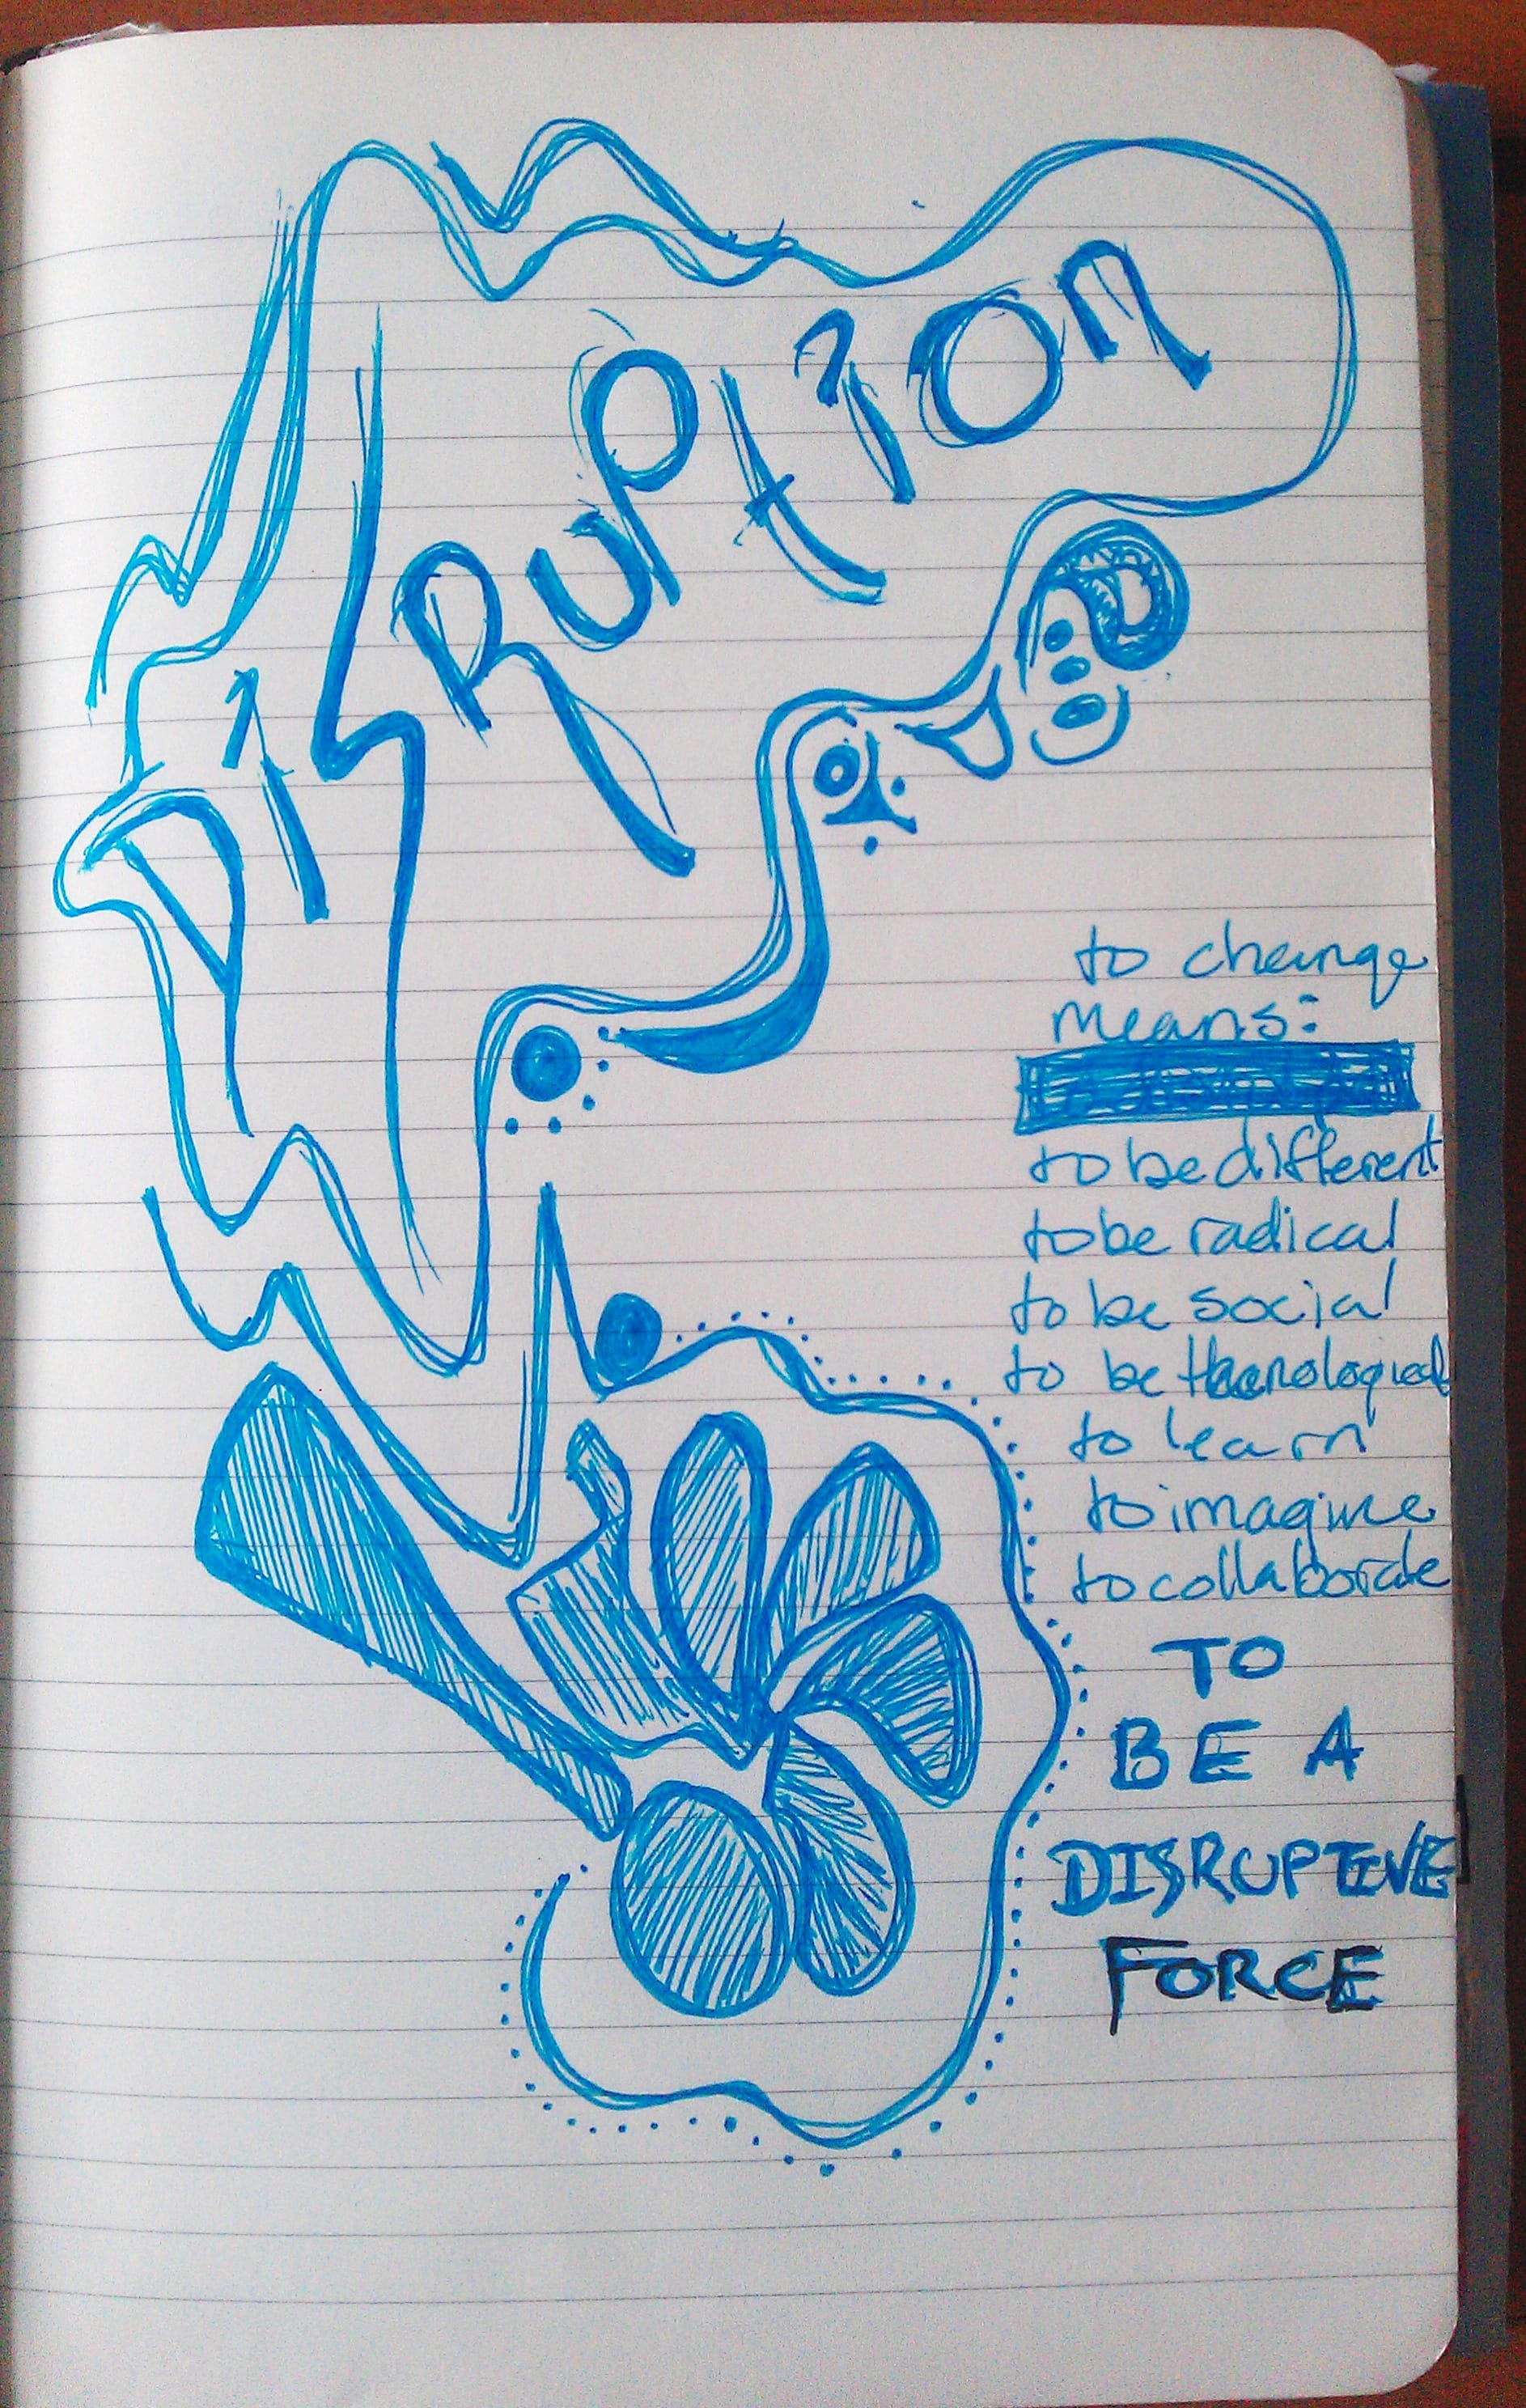 DISRUPTION
to change
means:
to be different
to be radical
to be social
to be
to learn
to imagine
to collaborate
TO
BE A
DISRUPTIVE
FORCE